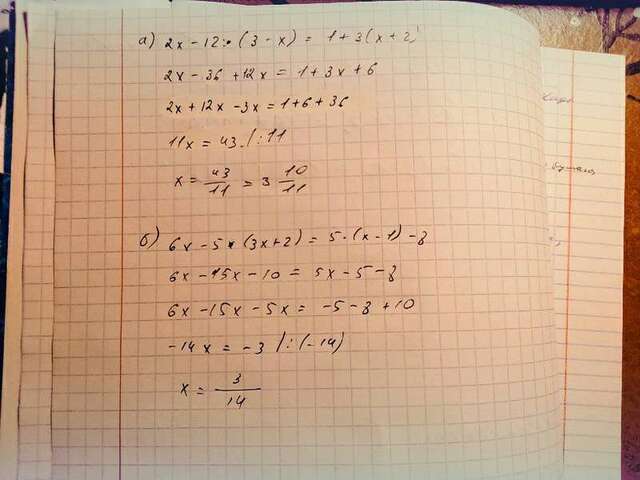 а) 2x - 12 · (3 - x) = 1 + 3(x + 2)
2x - 36 + 12x = 1 + 3x + 6
2x + 12x - 3x = 1 + 6 + 36
11x = 43 / : 11
x = 43/11 = 3 10/11
б) 6x - 5 · (3x + 2) = 5 · (x - 1) - 8
6x - 15x - 10 = 5x - 5 - 8
6x - 15x - 5x = -5 - 8 + 10
-14x = -3 / : (-14)
x = 3/14